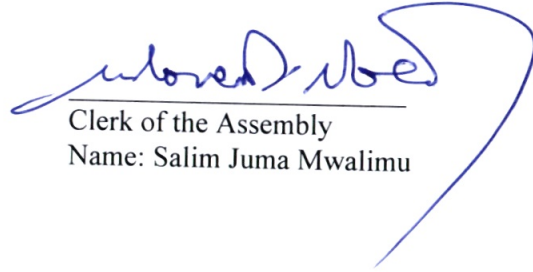 Clerk of the Assembly
Name: Salim Juma Mwalimu